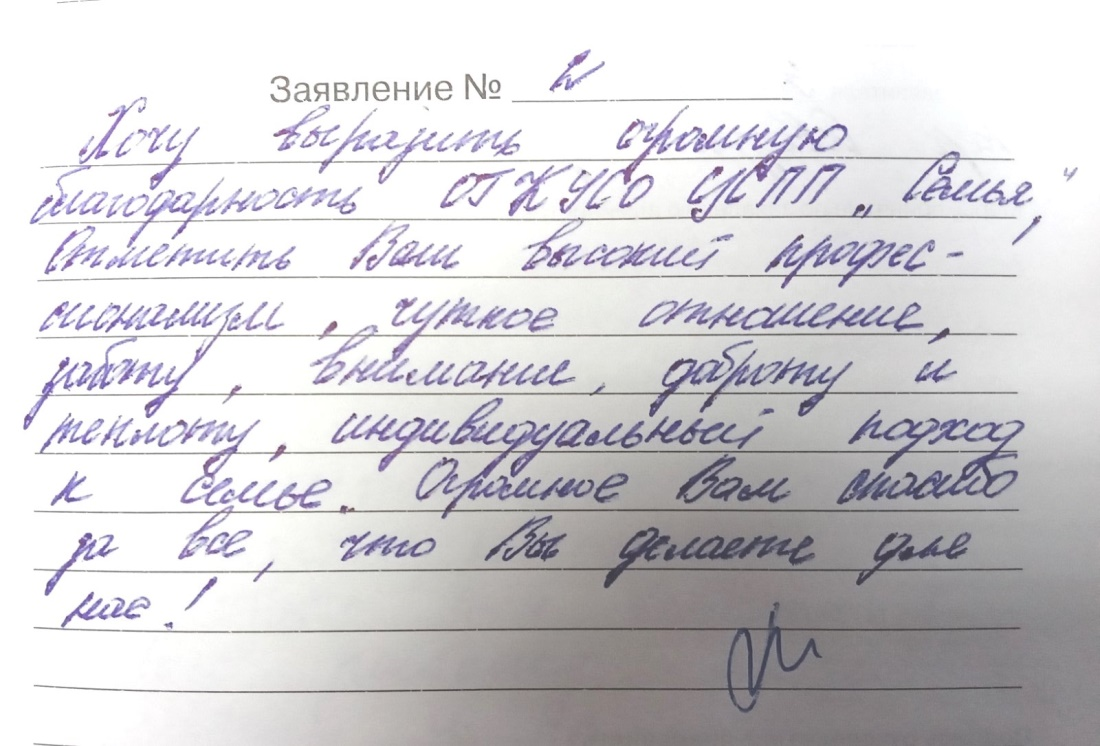 Заявление №
Хочу выразить огромную
благодарность ОГКУСО ЦСПП „Семья“,
Отметить Ваш высокий профес-
сионализм, чуткое отношение,
заботу, внимание, доброту и
теплоту, индивидуальный подход
к семье. Огромное Вам спасибо
за все, что Вы делаете для
нас!